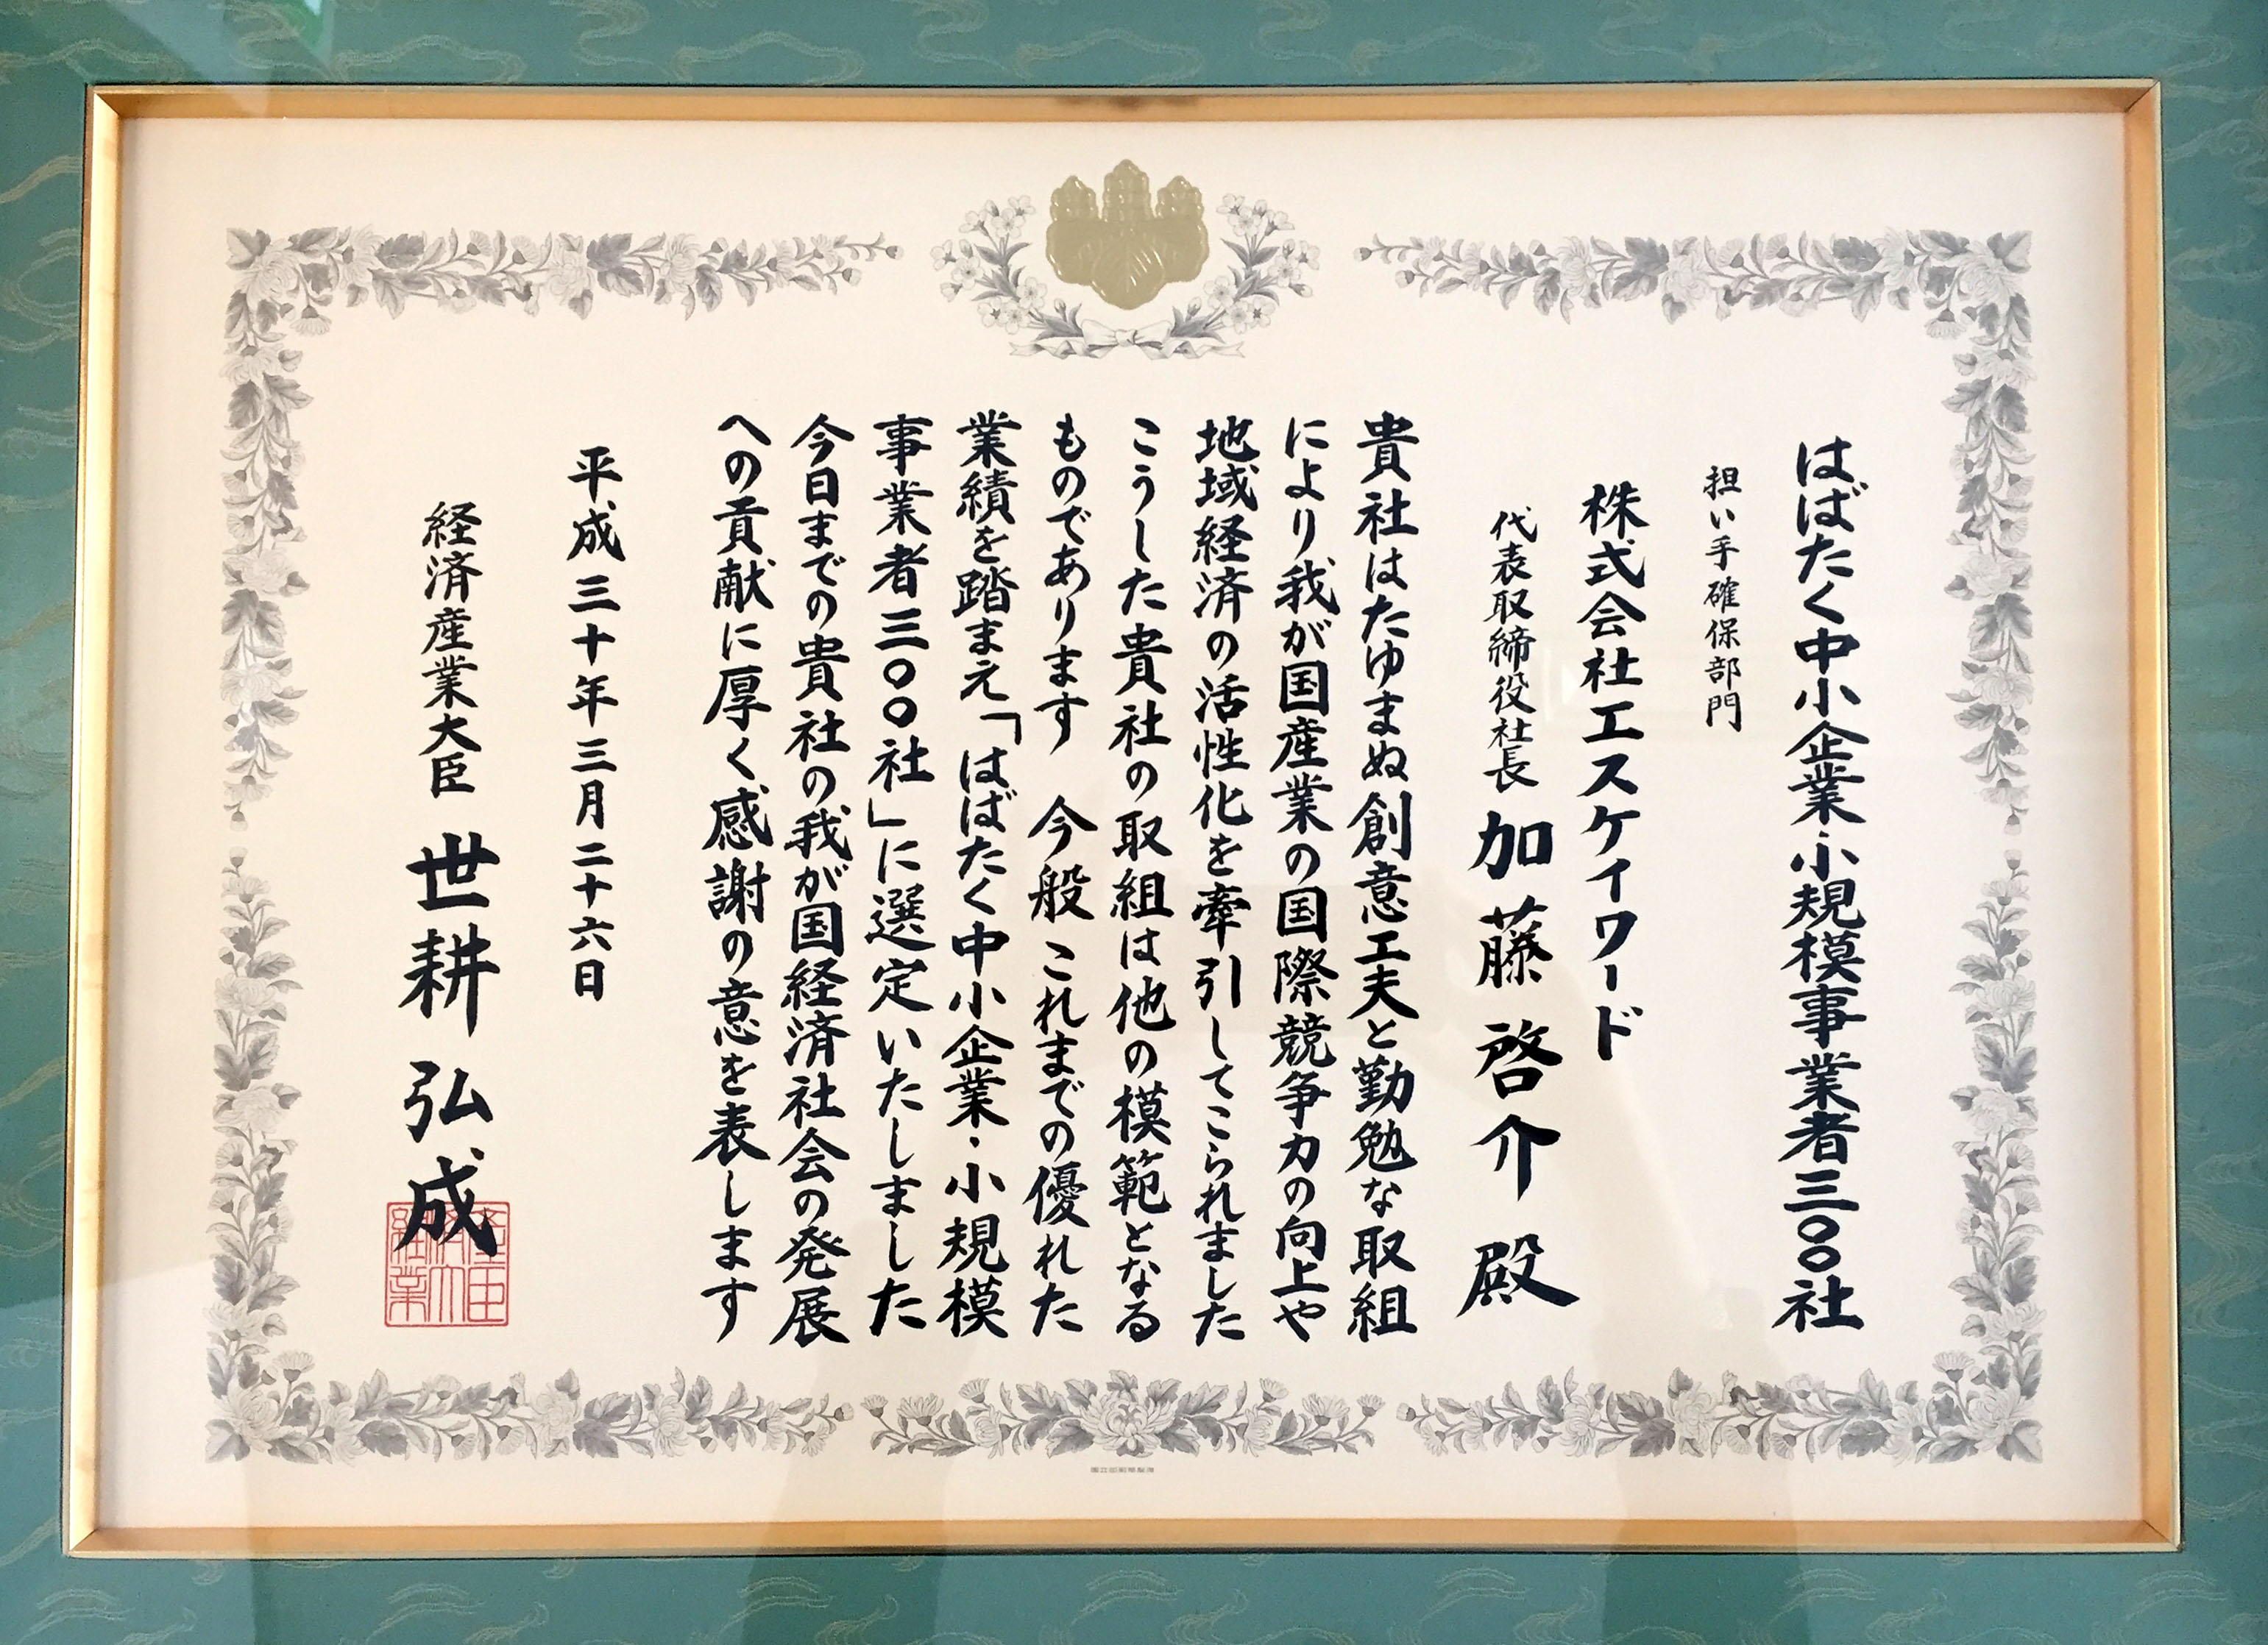 はばたく中小企業・小規模事業者三〇〇社
担い手確保部門
株式会社エスケイワード
代表取締役社長 加藤啓介殿
貴社はたゆまぬ創意工夫と勤勉な取組
により我が国産業の国際競争力の向上や
地域経済の活性化を牽引してこられました
こうした貴社の取組は他の模範となる
ものであります 今般これまでの優れた
業績を踏まえ「はばたく中小企業・小規模
事業者三〇〇社」に選定いたしました
今日までの貴社の我が国経済社会の発展
への貢献に厚く感謝の意を表します
平成三十年三月二十六日
経済産業大臣 世耕弘成